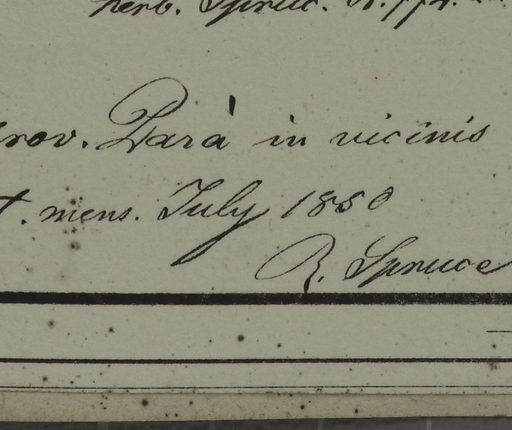 herb. Spruce. N. 774.
rov. Parà in vicinis
t. mens. July 1850
R. Spruce